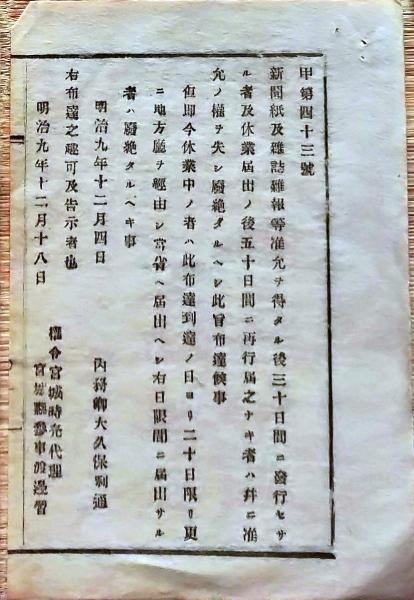 甲第四十三號
新聞紙及雜誌雜報等准允ヲ得タル後三十日間ニ發行セサ
ル者及休業届出ノ後五十日間ニ再行届之ナキ者ハ幷ニ准
允ノ權ヲ失シ廢絶タルヘシ此旨布達候事
但即今休業中ノ者ハ此布達到達ノ日ヨリ二十日限リ更
ニ地方廳ヲ經由シ當省ヘ届出ヘシ右日限間ニ届出サル
者ハ廢絶タルヘキ事
明治九年十二月四日
內務卿大久保利通
右布達之趣可及告示者也
明治九年十二月十八日
權令宮城時亮代理
宮城縣參事渡邊